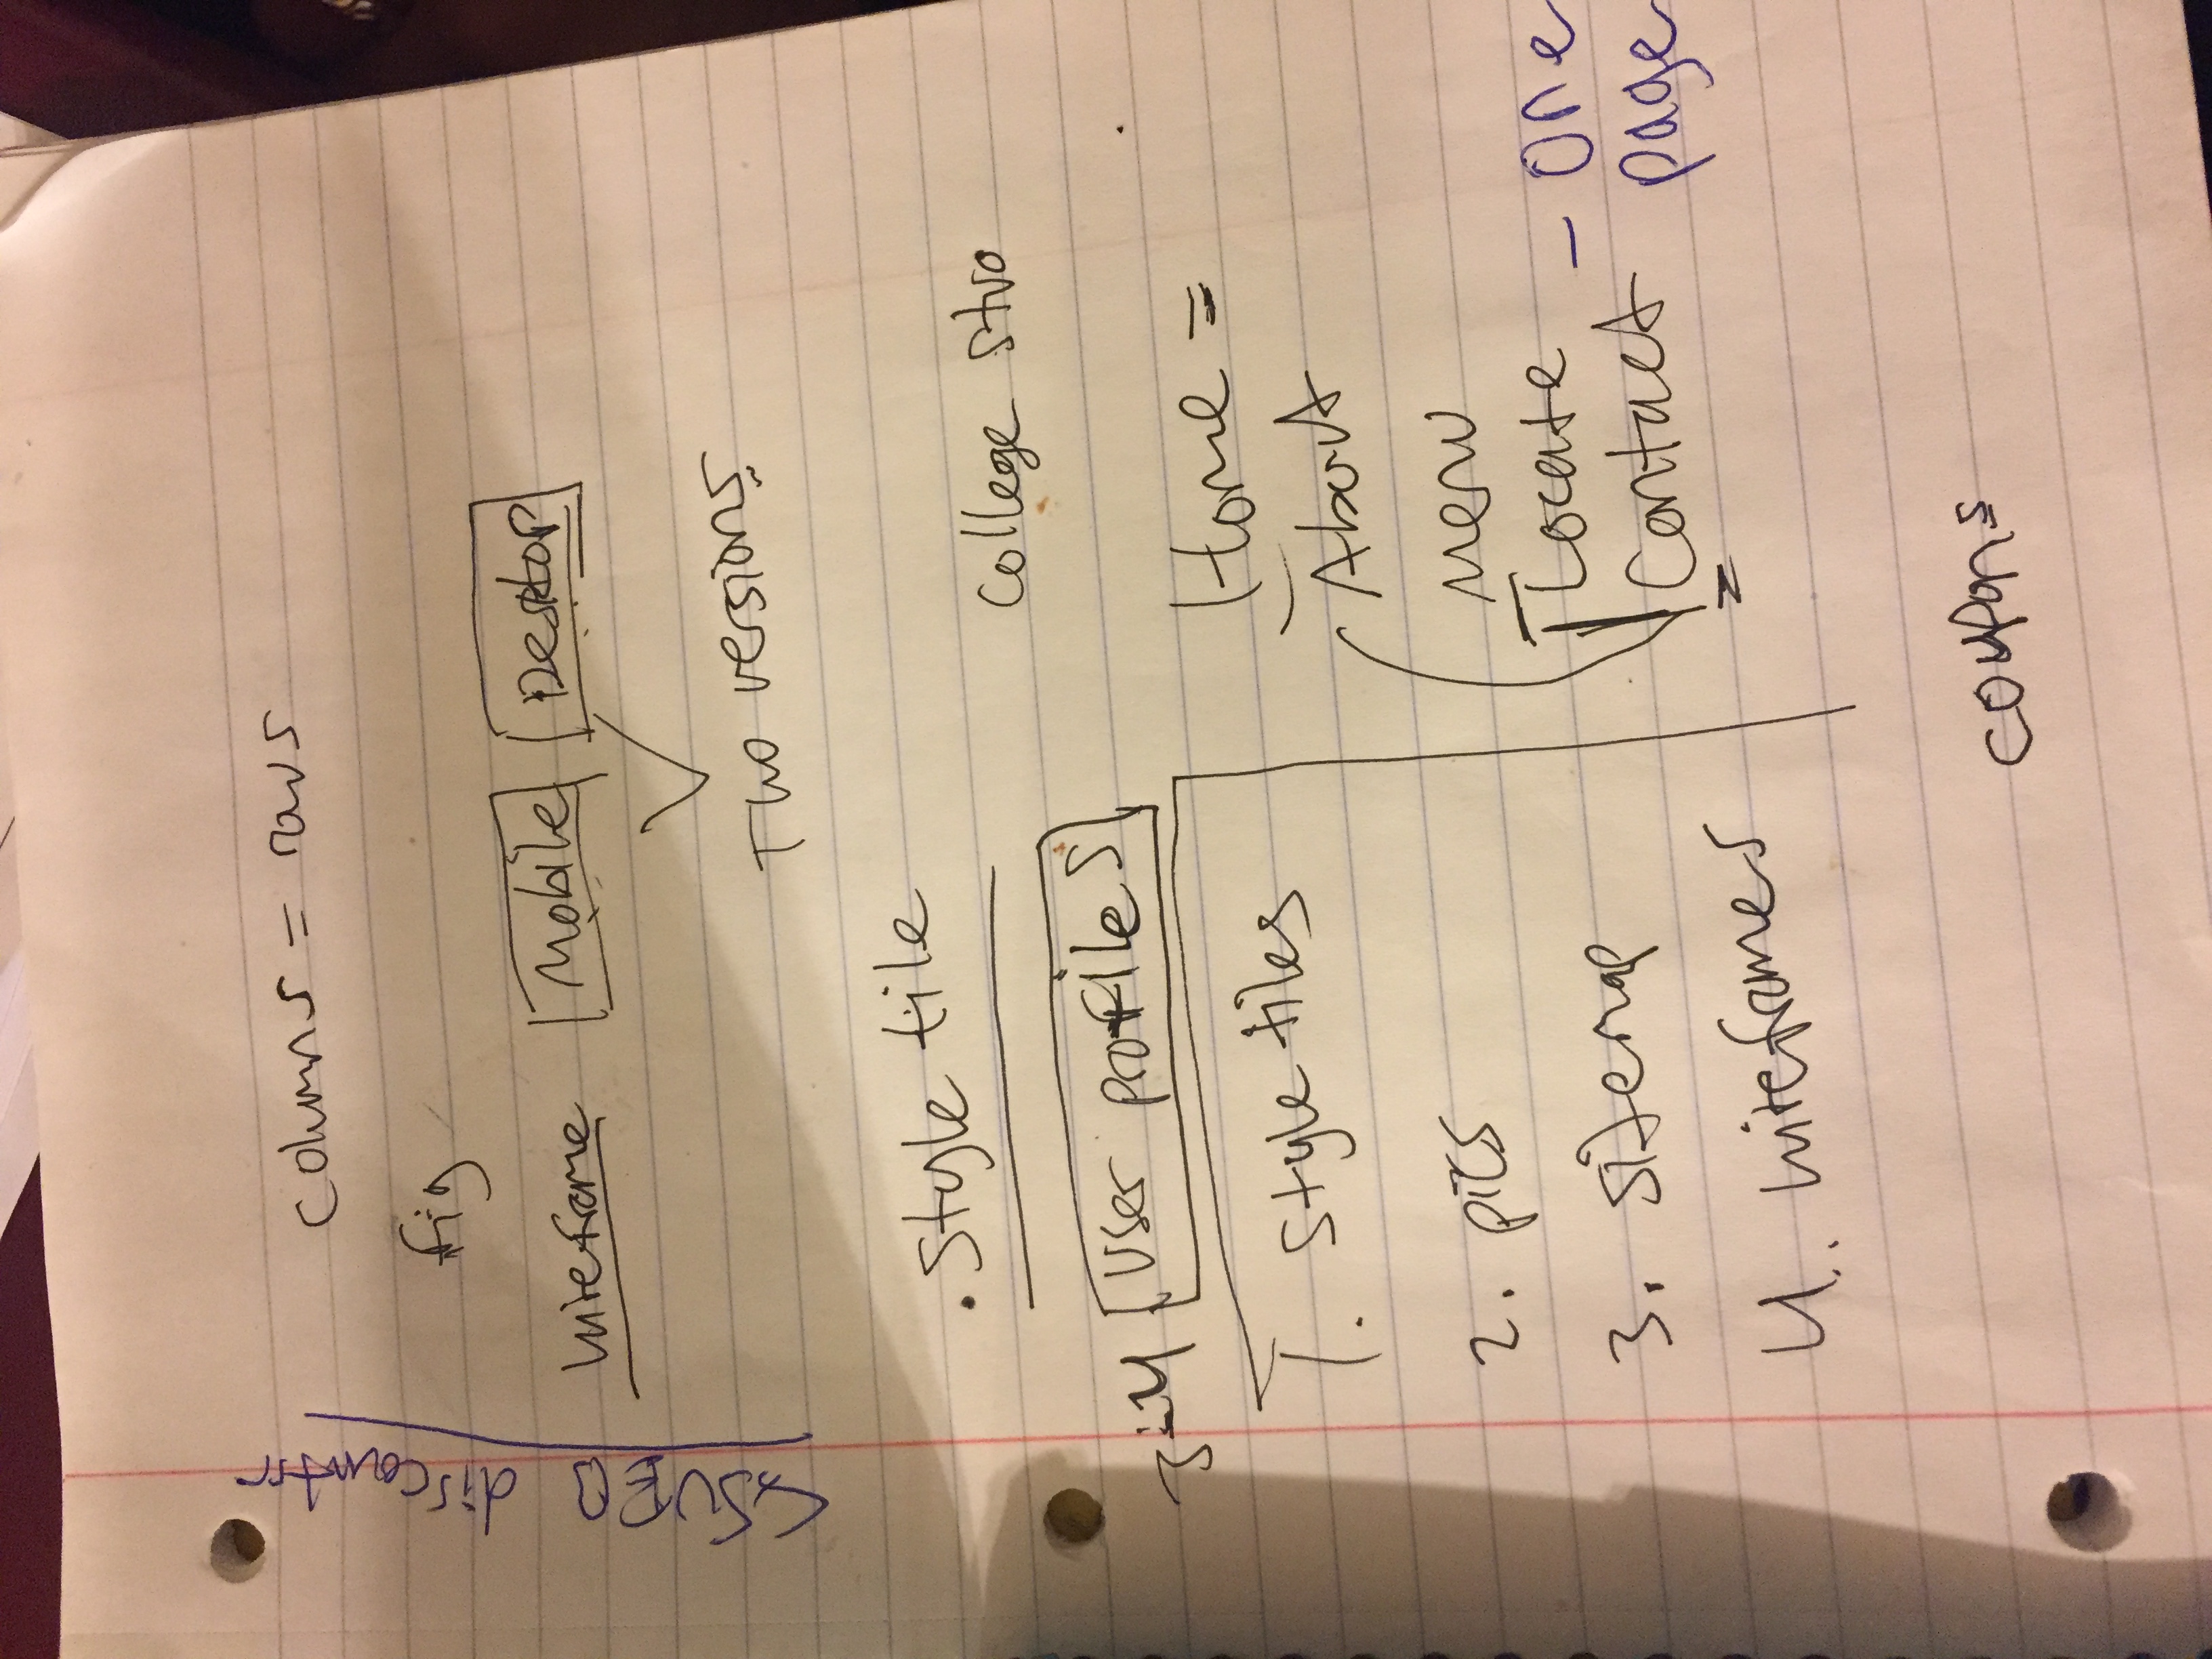 columns = rows
fig
wireframe Mobile Desktop
Two versions
. Style tile
College stuo
3-4 User profiles
1. Style tiles
2. pics
3. sitemap
4.. wireframes
Home =
About
Menu
Locate - One
Contact page
=
coupons
discounts